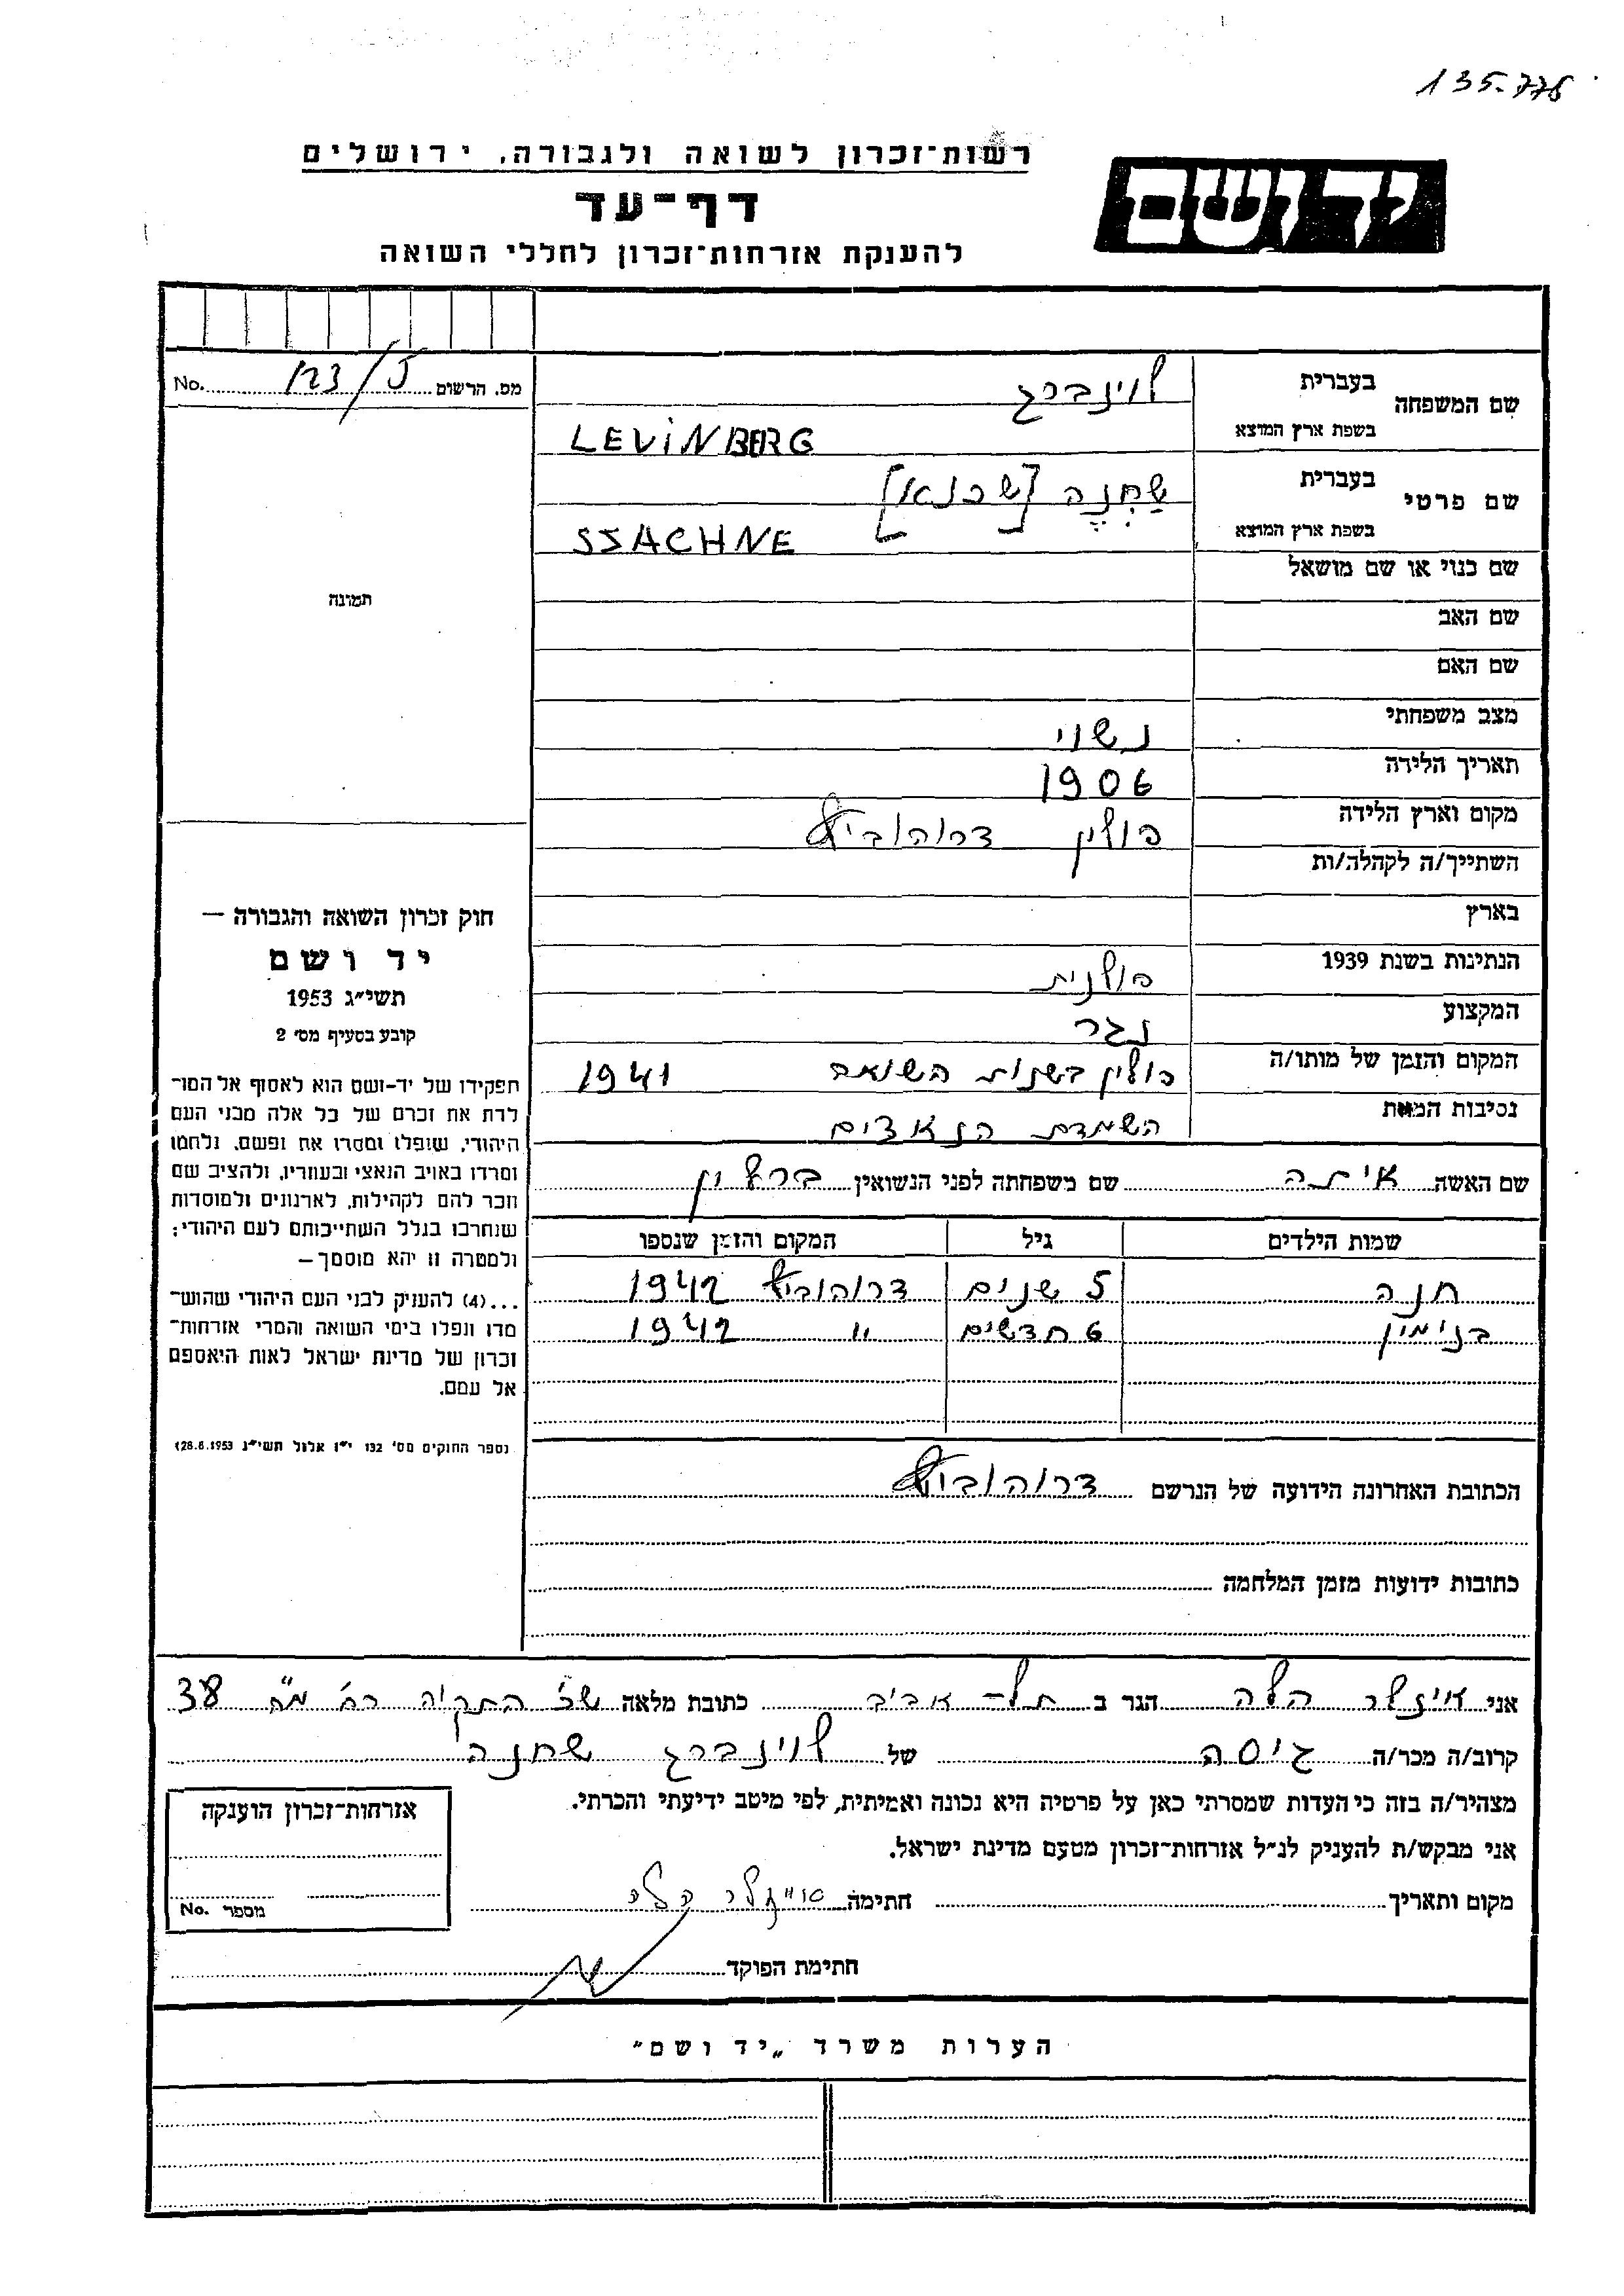 135.778
רשות־זכרון לשואה ולגבורה, ירושלים
יד ושם
דף־עד
להענקת אזרחות־זכרון לחללי השואה
No. 123/5 מס. הרשום
שם המשפחה בעברית לוינברג
בשפת ארץ המוצא LEVINBERG
שם פרטי בעברית שַׁחְנֶה [שכנא]
בשפת ארץ המוצא SZACHNE
שם כנוי או שם מושאל
שם האב
שם האם
מצב משפחתי נשוי
תאריך הלידה 1906
מקום וארץ הלידה פולין דרוהוביץ
השתייך/ה לקהלה/ות
בארץ
הנתינות בשנת 1939 פולנית
המקצוע נגר
המקום והזמן של מותו/ה פולין בשנות השואה 1941
נסיבות המות השמדת הנאצים
שם האשה איתה שם משפחתה לפני הנשואין
שמות הילדים גיל המקום והזמן שנספו
חנה 5 שנים דרוהוביץ 1942
בנימין 6 חדשים " 1942
הכתובת האחרונה הידועה של הנרשם דרוהוביץ
כתובות ידועות מזמן המלחמה
תמונה
חוק זכרון השואה והגבורה —
יד ושם
תשי״ג 1953
קובע בסעיף מס׳ 2
תפקידו של יד־ושם הוא לאסוף אל המו־
לדת את זכרם של כל אלה מבני העם
היהודי, שנפלו ומסרו את נפשם, נלחמו
ומרדו באויב הנאצי ובעוזריו, ולהציב שם
וזכר להם לקהילות, לארגונים ולמוסדות
שנחרבו בגלל השתייכותם לעם היהודי;
ולמטרה זו יהא מוסמך —
...(4) להעניק לבני העם היהודי שהוש־
מדו ונפלו בימי השואה והמרי אזרחות־
זכרון של מדינת ישראל לאות היאספם
אל עמם.
(ספר החוקים מס׳ 132 י״ז אלול תשי״ג 28.8.1953)
אני אייזלר הלה הגר ב תל־אביב כתובת מלאה 38
קרוב/ה מכר/ה גיסה של לוינברג שחנה
מצהיר/ה בזה כי העדות שמסרתי כאן על פרטיה היא נכונה ואמיתית, לפי מיטב ידיעתי והכרתי.
אני מבקש/ת להעניק לנ״ל אזרחות־זכרון מטעם מדינת ישראל.
מקום ותאריך חתימה
חתימת הפוקד
אזרחות־זכרון הוענקה
מספר No.
הערות משרד „יד ושם״